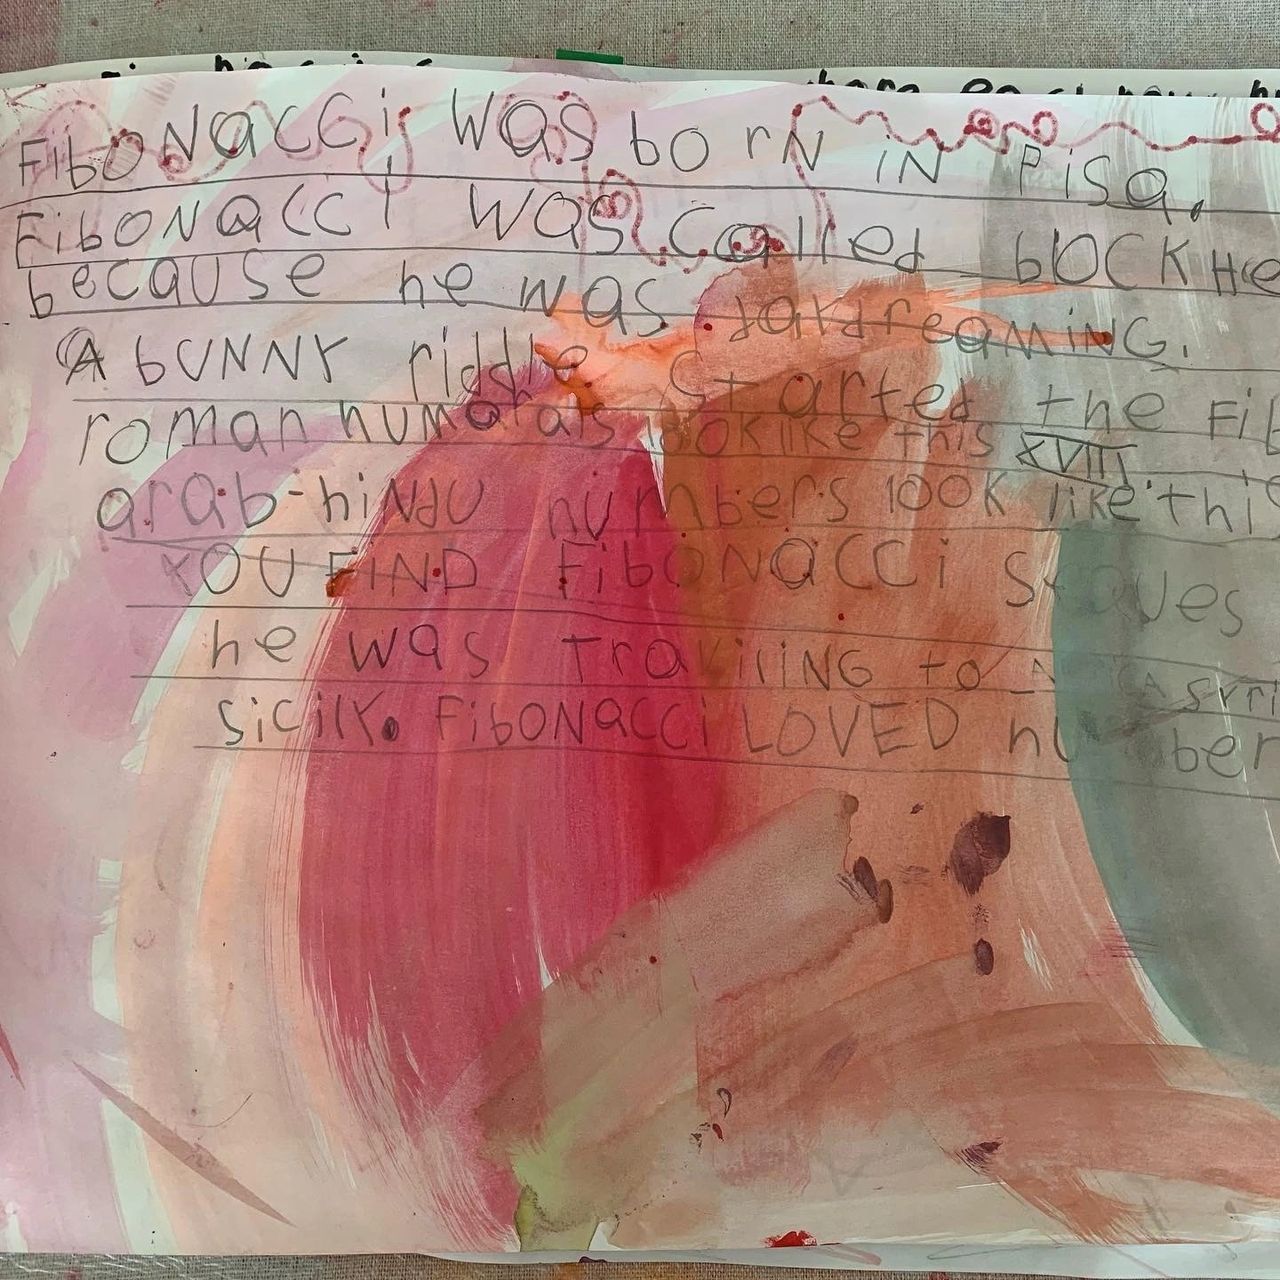 FiboNacci was borN iN Pisa.
FiboNacci was called bLOCKHe
because he was dardreaMiNG.
A bUNNY riddle started the Fib
roman numarals look like this XVIII
arab-hiNdU numbers look like this
YOU FIND FiboNacci
he was TraviliNG to A syri
siciLY. FiboNacci LOVED number